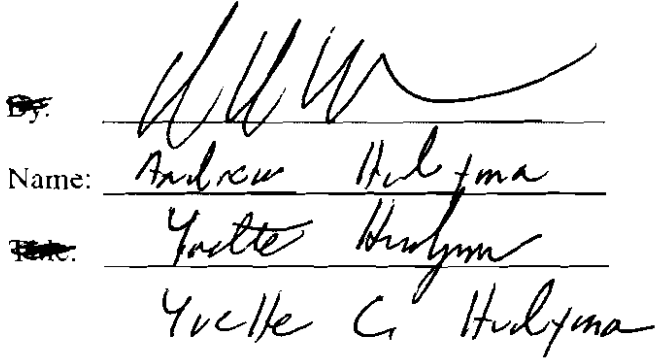 By:
Name: Andrew Hudyma
Title: Yvette Hudyma
Yvette C Hudyma